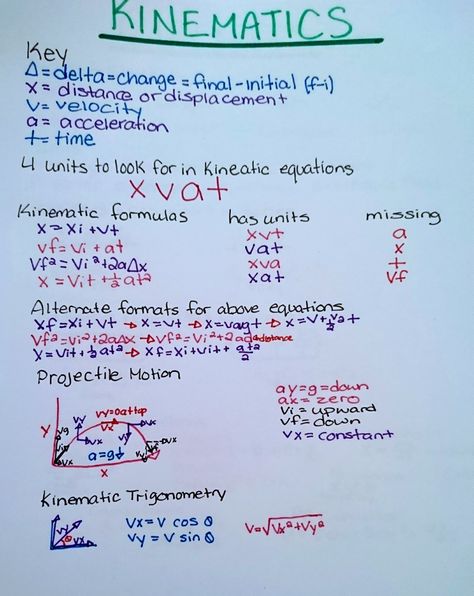 KINEMATICS
Key
Δ=delta=change=final-initial (f-i)
x = distance or displacement
v= velocity
a= acceleration
t= time
4 units to look for in Kineatic equations
x v a t
Kinematic formulas has units missing
x = xi +vt xvt a
vf= vi +at vat x
vf²= vi²+2aΔx xva t
x = vit +½at² xat vf
Alternate formats for above equations
xf=xi+vt → x=vt → x=vavgt →
vf²=vi²+2aΔx → vf²=vi²+2ad distance
x=vit+½at² → xf=xi+vit+ at²/2
Projectile Motion
ay=g=down
ax= zero
vi = upward
vf= down
vx = constant
vy=0 at top
y
vy
vx
a=g↓
x
Kinematic Trigonometry
vx=v cos θ
vy=v sin θ
v=√vx²+vy²
vy
θ
vx